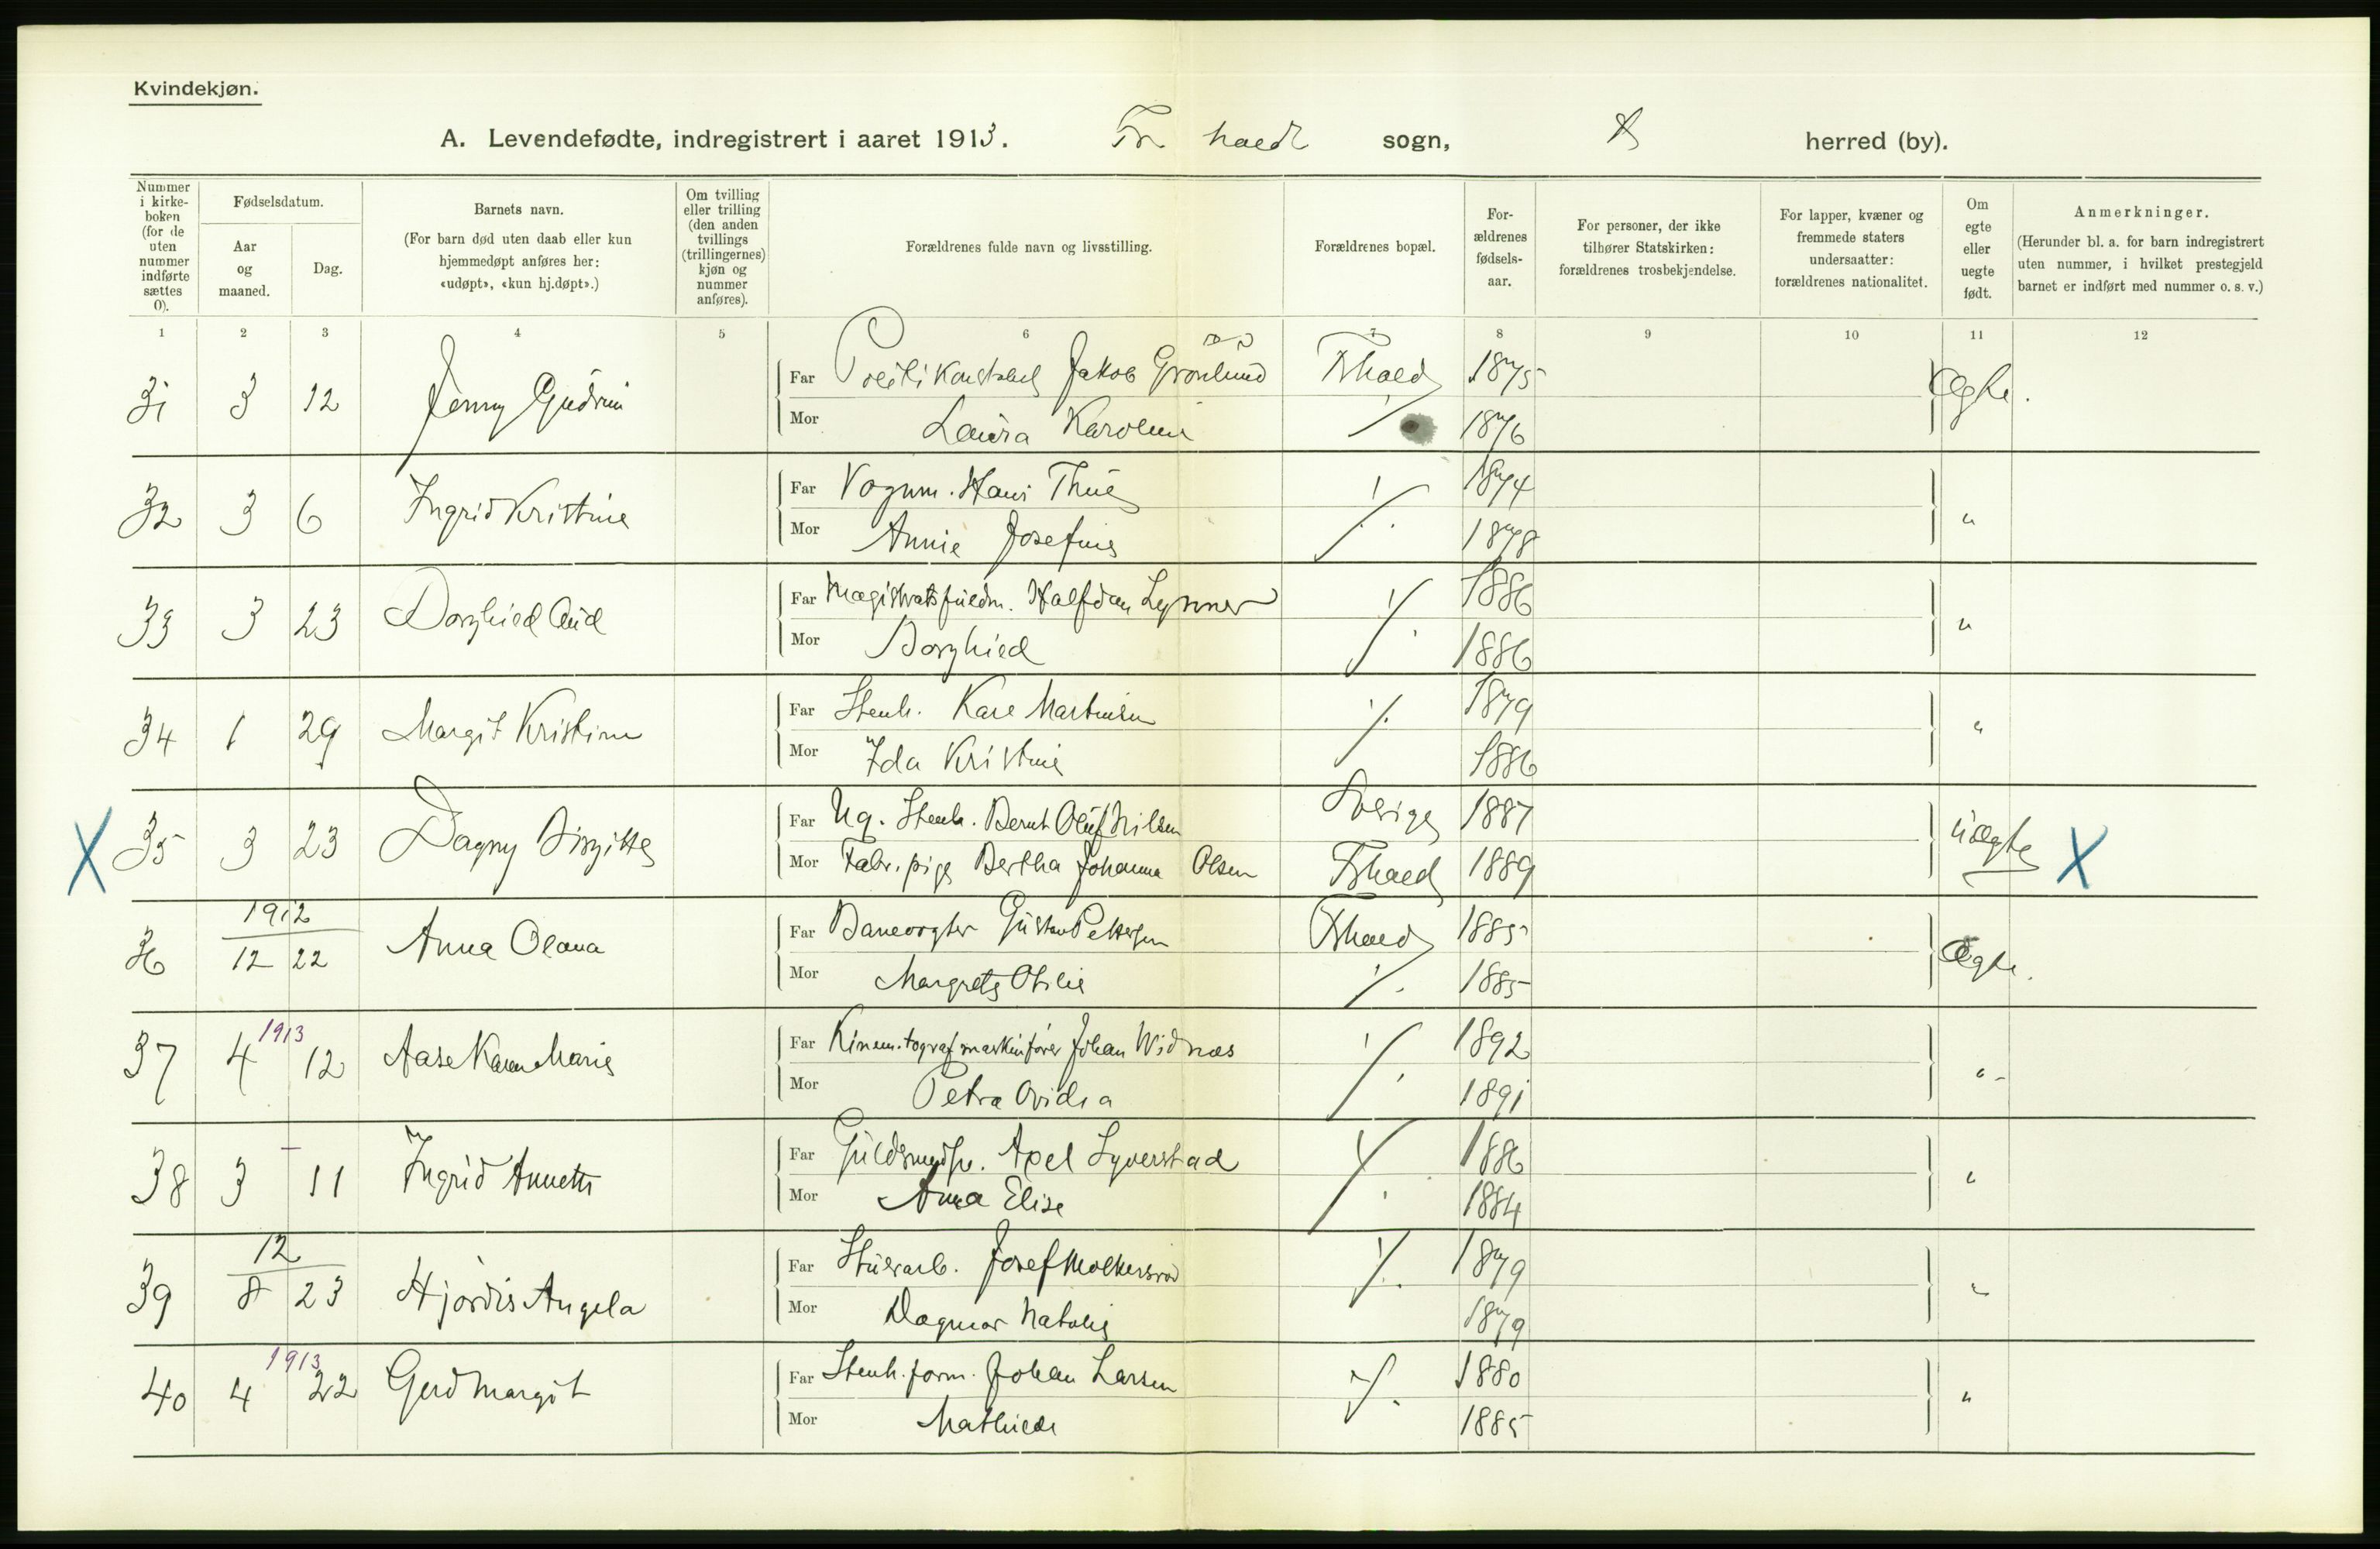 Kvindekjøn.
A. Levendefødte, indregistrert i aaret 1913. Fr hald sogn, herred (by).
Nummer i kirkeboken (for de uten nummer indførte sættes 0).
Fødselsdatum.
Aar og maaned.
Dag.
Barnets navn.
(For barn død uten daab eller kun hjemmedøpt anføres her: «udøpt», «kun hj.døpt».)
Om tvilling eller trilling (den anden tvillings (trillingernes) kjøn og nummer anføres).
Forældrenes fulde navn og livsstilling.
Forældrenes bopæl.
Forældrenes fødselsaar.
For personer, der ikke tilhører Statskirken: forældrenes trosbekjendelse.
For lapper, kvæner og fremmede staters undersaatter: forældrenes nationalitet.
Om egte eller uegte født.
Anmerkninger.
(Herunder bl. a. for barn indregistrert uten nummer, i hvilket prestegjeld barnet er indført med nummer o. s. v.)
1 2 3 4 5 6 7 8 9 10 11 12
31 3 12 Jenny Gudrun Far Politikonstabel Jakob Grønlund Frhald 1875 Ægte.
Mor Laura Karoline 1876
32 3 6 Ingrid Kristine Far Vognm. Hans Thue 1874 "
Mor Annie Josefine 1878
33 3 23 Borghild Aud Far Magistratsfuldm. Halfdan Lynner 1886 "
Mor Borghild 1886
34 1 29 Margit Kristine Far Stenh. Karl Martinsen 1879 "
Mor Ida Kristine 1886
X 35 3 23 Dagny Birgitte Far Ug. Stenh. Bernt Oluf Nilsen Sverige 1887 uægte X
Mor Fabr.pige Bertha Johanna Olsen Frhald 1889
1912
36 12 22 Anna Olava Far Banevogter Gustav Pettersen Frhald 1885 Ægte.
Mor Margrete Otilie 1885
1913
37 4 12 Aase Karen Marie Far Kinematografmaskinfører Johan Widnæs 1892 "
Mor Petra Ovidia 1891
38 3 11 Ingrid Annette Far Guldsmedsv. Axel Syverstad 1886 "
Mor Anna Elise 1884
12
39 8 23 Hjørdis Angela Far Stuerarb. Josef 1879 "
Mor Dagmar Natalie 1879
1913
40 4 22 Gerd Margit Far Stenh.form. Johan Larsen 1880 "
Mor Mathilde 1885